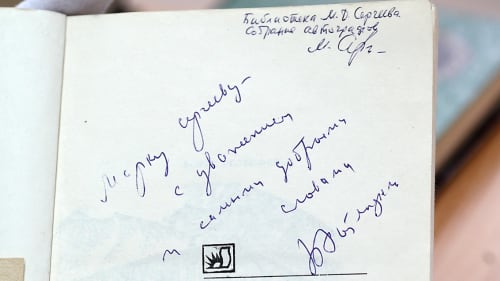 Библиотека М. Д. Сергеева
Собрание автографов
М. Сергеев
Марку Сергееву –
с уважением
и самыми добрыми
словами